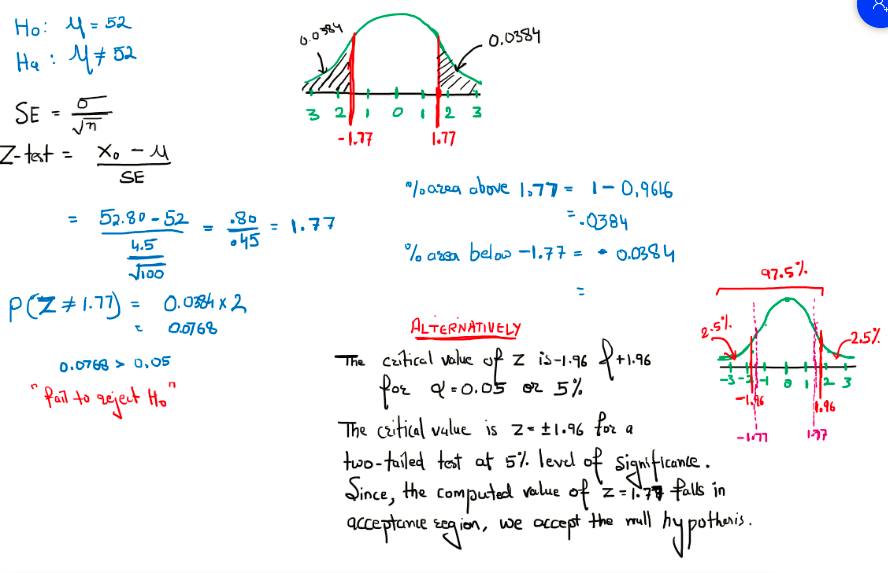 Ho: μ = 52
Ha: μ ≠ 52
SE = σ/√n
Z-test = (X₀ - μ)/SE
= (52.80 - 52)/(4.5/√100) = .80/.45 = 1.77
P(Z ≠ 1.77) = 0.0384 x 2
= 0.0768
0.0768 > 0.05
"fail to reject Ho"
0.0384
0.0384
3 2 1 0 1 2 3
-1.77 1.77
% area above 1.77 = 1 - 0.9616
= .0384
% area below -1.77 = 0.0384
=
ALTERNATIVELY
The critical value of Z is -1.96 & +1.96
for α = 0.05 or 5%
The critical value is Z = ±1.96 for a
two-tailed test at 5% level of significance.
Since, the computed value of Z = 1.77 falls in
acceptance region, we accept the null hypothesis.
97.5%
2.5% 2.5%
-3 -2 -1 0 1 2 3
-1.96 1.96
-1.77 1.77